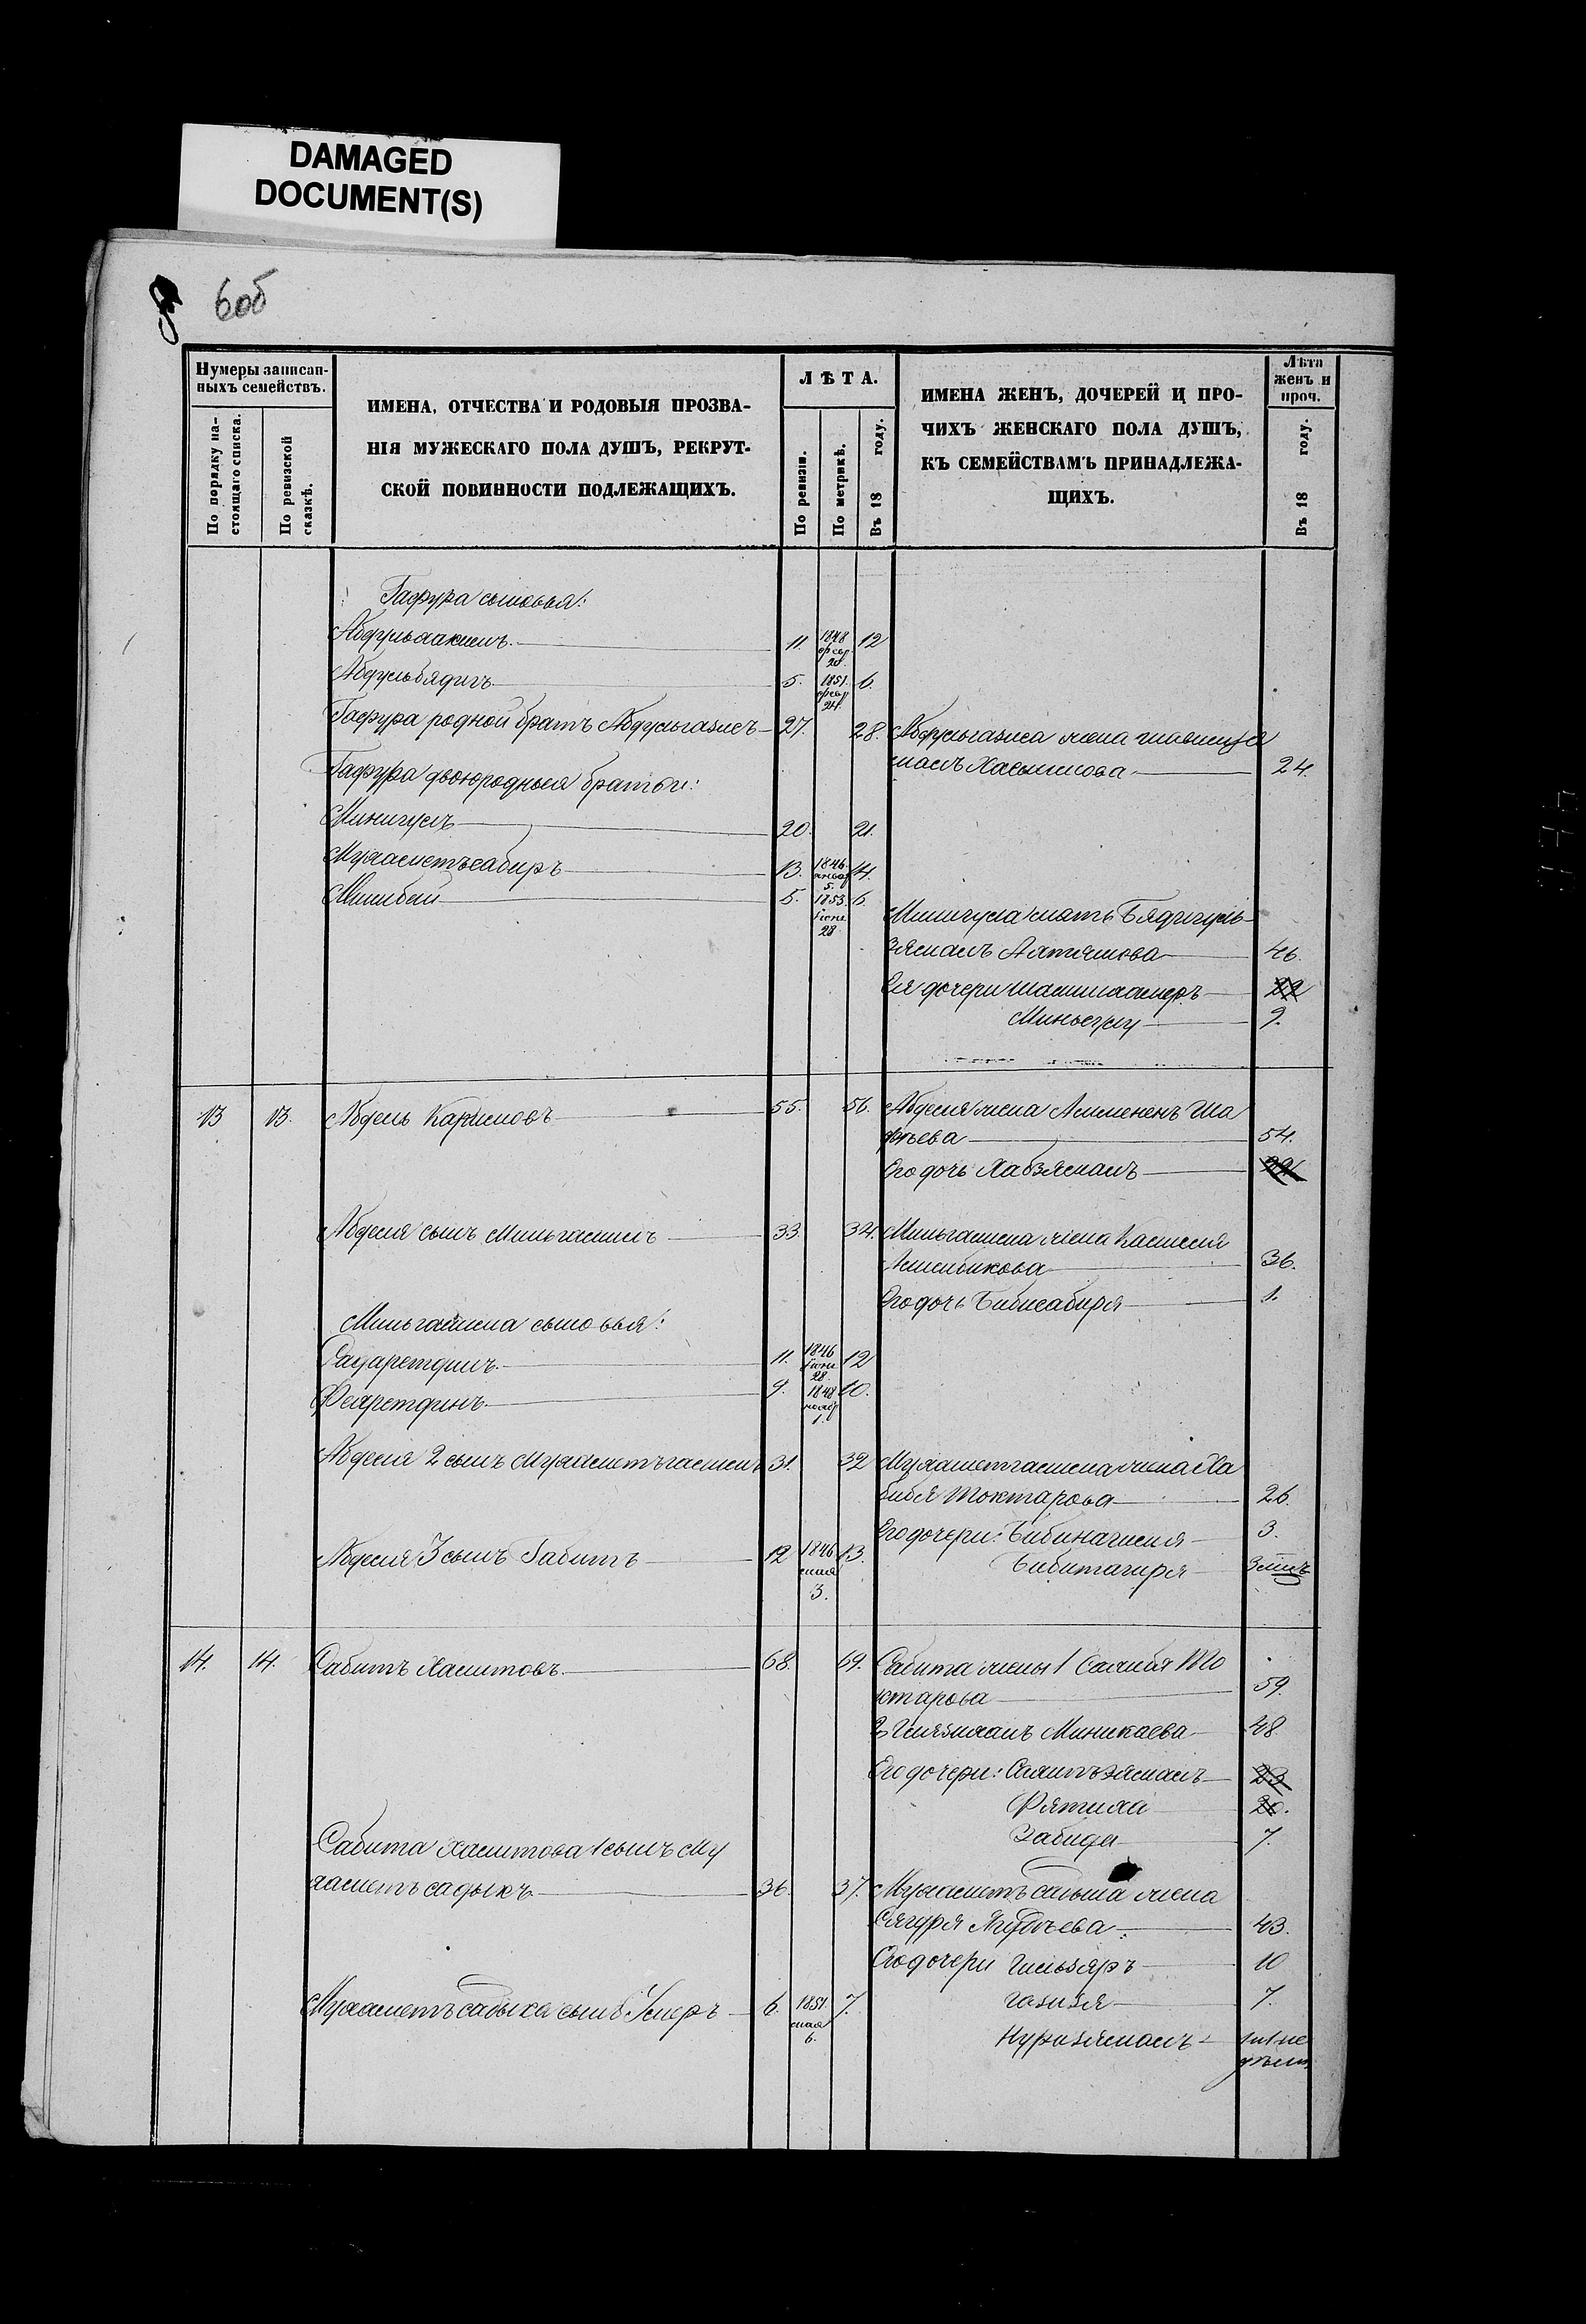 DAMAGED
DOCUMENT(S)
6об
Нумеры записан-
ныхъ семействъ.
По порядку на-
стоящаго списка.
По ревизской
сказкѣ.
ИМЕНА, ОТЧЕСТВА И РОДОВЫЯ ПРОЗВА-
НІЯ МУЖЕСКАГО ПОЛА ДУШЪ, РЕКРУТ-
СКОЙ ПОВИННОСТИ ПОДЛЕЖАЩИХЪ.
ЛѢТА.
По ревизіи.
По метрикѣ.
Въ 18 году.
ИМЕНА ЖЕНЪ, ДОЧЕРЕЙ И ПРО-
ЧИХЪ ЖЕНСКАГО ПОЛА ДУШЪ,
КЪ СЕМЕЙСТВАМЪ ПРИНАДЛЕЖА-
ЩИХЪ.
Лѣта
женъ и
проч.
Въ 18 году.
Гафура сыновья:
Абдульхакимъ 11. 1848 февр. 20. 12
Абдульбядигъ 5. 1851. февр. 24. 6.
Гафура родной братъ Абдульгазисъ 27. 28.
Абдульгазиса жена
Хасымова 24.
Гафура двоюродныя братьи:
Минигулъ 20. 21.
Мухаметъсабиръ 13. 1846. январ. 5. 14.
Минибай 5. 1853. іюня 28. 6.
Минигула мать Бядигуль-
зяманъ 46.
Ея дочери 22
9.
13 13. Абдель Каримовъ 55. 56.
Абделя жена Ша
фѣева 54.
Его дочь Хабзяманъ 22
Абделя сынъ Миньгасимъ 33. 34.
Миньгасима жена
Ишибикова 36.
Его дочь Бибисабиря 1.
Миньгасима сыновья:
Садретдинъ 11. 1846 іюня 28. 12
Фехретдинъ 9. 1848 нояб. 1. 10.
Абделя 2 сынъ Мухаметъгасимъ 31. 32
Мухаметгасима жена Ха
бибя Токтарова 26.
Его дочери: Бибинагимя 3.
Бибитагиря 3 мѣс.
Абделя 3 сынъ Габитъ 12 1846 мая 3. 13.
14. 14. Сабитъ Хамитовъ 68. 69.
Сабита жены 1 Салибя То
ктарова 59.
2 Миникаева 48
Его дочери: Самитъзяманъ 23
Фятиха 20.
Забида 7.
Сабита Хамитова 1 сынъ Му
хаметъсадыкъ 36. 37.
Мухаметъ жена
Сягуря 43.
Его дочери Гильзяръ 10
Газизя 7.
Нуризяманъ
Мухаметъсадыка сынъ Умеръ 6. 1851. мая 6. 7.